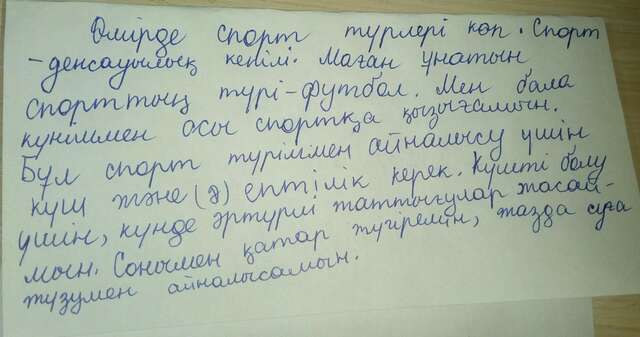 Өмірде спорт түрлері көп. Спорт
- денсауылық кепілі. Маған ұнатын
спорттың түрі - футбол. Мен бала
күнімнен осы спортқа қызығамын.
Бұл спорт түрімен айналысу үшін
күш және (ә) ептілік керек. Күшті болу
үшін, күнде әртүрлі жаттығулар жасай-
мын. Сонымен қатар жүгіремін, жазда суға
жүзумен айналысамын.